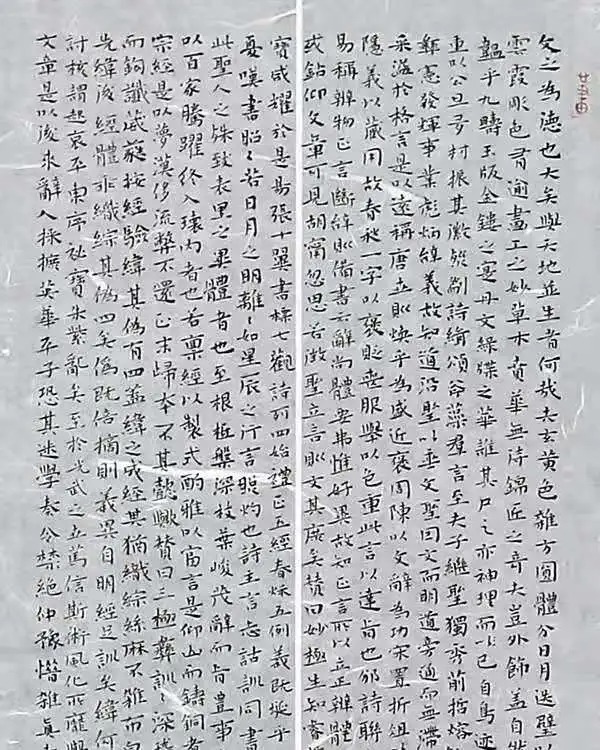 文之為德也大矣與天地並生者何哉夫玄黃色雜方圓體分日月迭璧
雲霞彫色有逾畫工之妙草木賁華無待錦匠之奇夫豈外飾蓋自
韞乎九疇玉版金鏤之實丹文綠牒之華誰其尸之亦神理而已自鳥迹
重以公旦多材振其徽烈剬詩緝頌斧藻羣言至夫子繼聖獨秀前哲熔
憲發輝事業彪炳辭義故知道沿聖以垂文聖因文而明道旁通而無滯
采溢於格言是以遠稱唐立則煥乎為盛近褒周陳以文辭為功宋置折俎
隱義以藏用故春秋一字以褒貶喪服舉以色重此言以達旨也邠詩聯
易稱辨物正言斷辭則備書云辭尚體要弗惟好異故知正言所以立辨體
或鑽仰文章可見胡甯忽思若徵聖立言則文其庶矣贊曰妙極生知睿
寶咸耀於是易張十翼書標七觀詩列四始禮正五經春秋五例義既埏乎
憂嘆書昭々若日月之明離々如星辰之行言照灼也詩主言志詁訓同書
此聖人之殊致表里之異體者也至根柢槃深枝葉峻茂辭而旨豐事
以百家騰躍終入環內者也若稟經以製式酌雅以富言是仰山而鑄銅者
宗經是以夢漢侈流弊不還正末歸本不其懿歟贊曰三極彝訓深
而鉤讖葳蕤按經驗緯其偽有四蓋緯之成經其猶織綜絲麻不雜而
先緯後經體乖織綜其偽四矣偽既倍摘則義異自明經足訓矣緯何
討核謂起哀平東序秘寶朱紫亂矣至於光武之立篤信斯術風化所靡學
文章是以後來辭人採摭英華平子恐其迷學奏令禁絕仲豫惜雜真